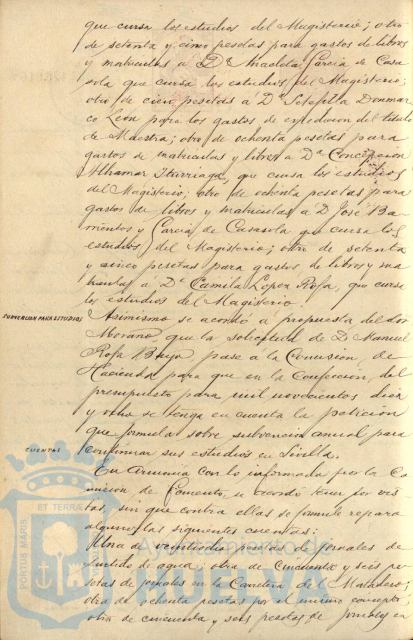 que cursa los estudios del Magisterio; otro
de setenta y cinco pesetas para gastos de libros
y matriculas a Dª García de Casa
sola que cursa los estudios del Magisterio;
otro de cien pesetas a Dª Setefilla Donmar
co León para los gastos de expedicion del titulo
de Maestra; otro de ochenta pesetas para
gastos de matriculas y libros a Dª Concepción
Alhamar Iturriaga, que cursa los estudios
del Magisterio; otro de ochenta pesetas para
gastos de libros y matriculas a D. José Ba
rrientos y García de Casasola que cursa los
estudios del Magisterio; otro de setenta
y cinco pesetas para gastos de libros y ma
triculas a Dª Camila López Rofa, que cursa
los estudios del Magisterio.
SUBVENCION PARA ESTUDIOS
Asimismo se acordó a propuesta del Sor
Moraño, que la solicitud de D. Manuel
Rofa pase a la Comision de
Hacienda para que en la Confección del
presupuesto para mil novecientos diez
y ocho se tenga en cuenta la petición
que formula sobre subvencion anual para
continuar sus estudios en Sevilla.
CUENTAS
En armonia con lo informado por la Co
mision de Fomento, se acordó tener por vis
tas, sin que contra ellas se formule reparo
alguno, las siguientes cuentas:
Una de veintiocho pesetas de jornales de
surtido de agua; otra de cincuenta y seis pe
setas de jornales en la Carretera del Matadero;
otra de ochenta pesetas por el mismo concepto;
otra de cincuenta y seis pesetas de jornales en
PORTUS MARIS ET TERRAE
Ayuntamiento de
HUELVA